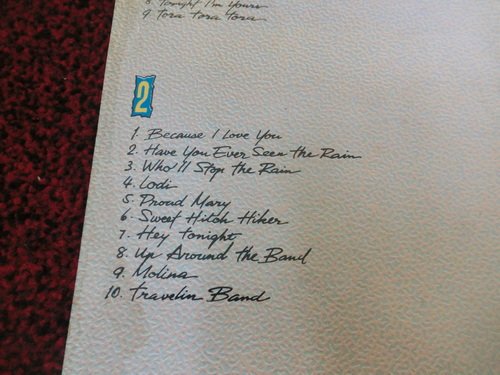 8. Tonight I'm Yours
9 Tora tora tora
2
1. Because I Love You
2. Have You Ever Seen the Rain
3. Who'll Stop the Rain
4. Lodi
5. Proud Mary
6. Sweet Hitch Hiker
7. Hey tonight
8. Up Around the Band
9. Molina
10. travelin Band